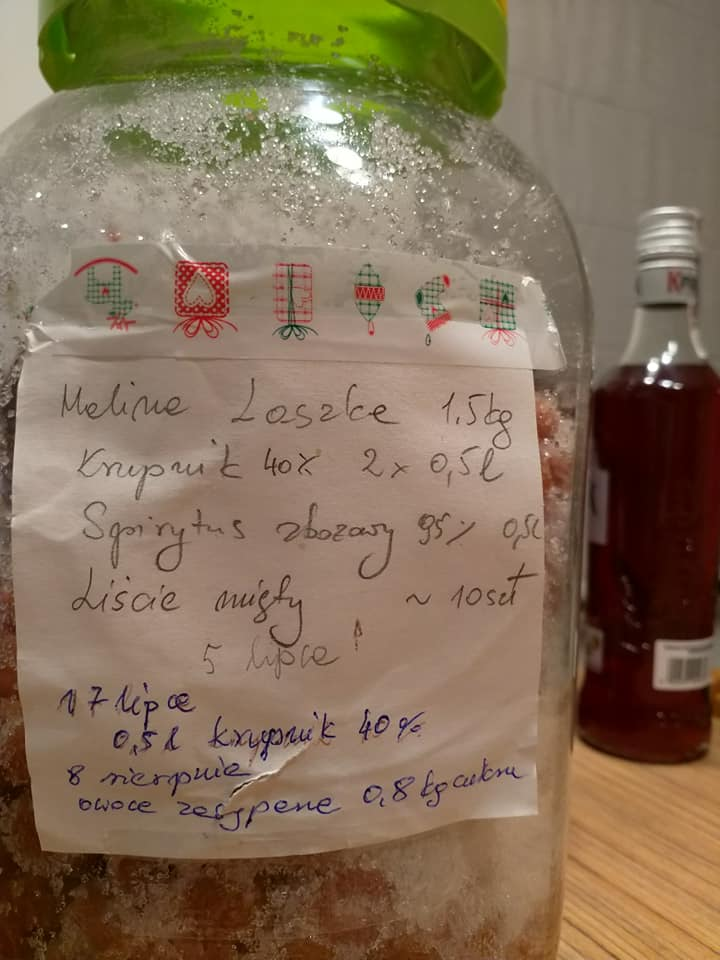 Malina Laszka 1.5kg
Krupnik 40% 2x 0,5l
Spirytus zbożowy 95% 0,5l
Liście mięty ~ 10szt
5 lipca
17 lipca
0,5l krupnik 40%
8 sierpnia
owoce zasypane 0,8kg cukru